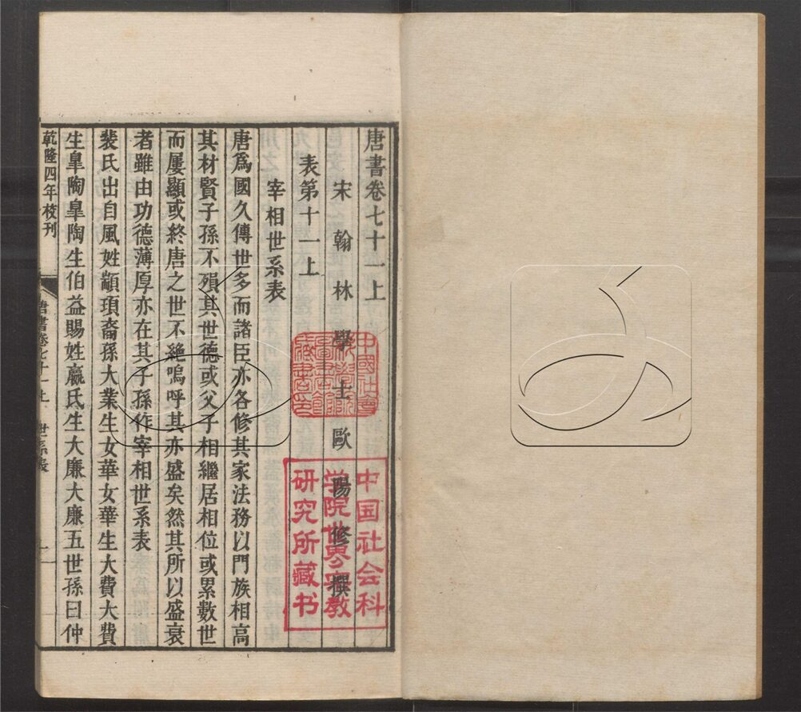 唐書卷七十一上
宋翰林學士歐陽修撰
表第十一上
宰相世系表
唐爲國久傳世多而諸臣亦各修其家法務以門族相高
其材賢子孫不殞其世德或父子相繼居相位或累數世
而屢顯或終唐之世不絶嗚呼其亦盛矣然其所以盛衰
者雖由功德薄厚亦在其子孫作宰相世系表
裴氏出自風姓顓頊裔孫大業生女華女華生大費大費
生臯陶臯陶生伯益賜姓嬴氏生大廉大廉五世孫曰仲
乾隆四年校刊
唐書卷七十一上 世系表 一
中國社會
中国社会科
学院世界宗教
研究所藏书